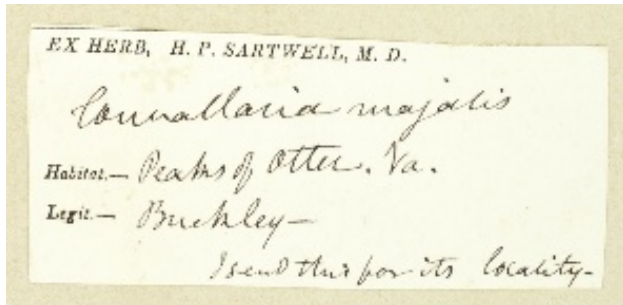 EX HERB, H. P. SARTWELL, M. D.
Convallaria majalis
Habitat.— Peaks of Otter. Va.
Legit.— Buckley—
I send this for its locality—